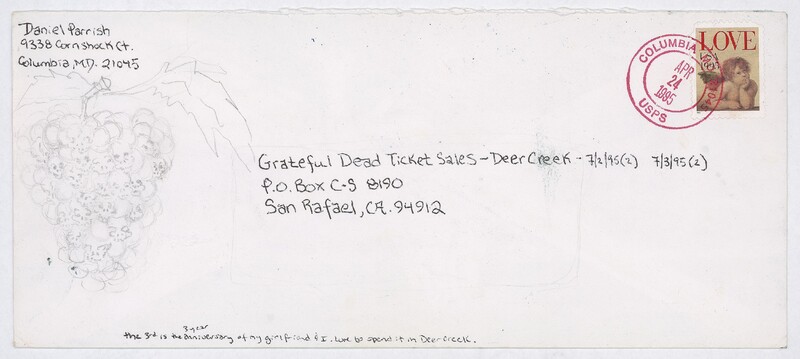 Daniel Parrish
9338 Cornshock Ct.
Columbia, M.D. 21045
LOVE
COLUMBIA
APR
24
1995
USPS
Grateful Dead Ticket Sales - Deer Creek - 7/2/95(2) 7/3/95(2)
P.O. Box C-S 8190
San Rafael, CA. 94912
3 year
the 3rd is the anniversary of my girlfriend & I. Love to spend it in Deer Creek.